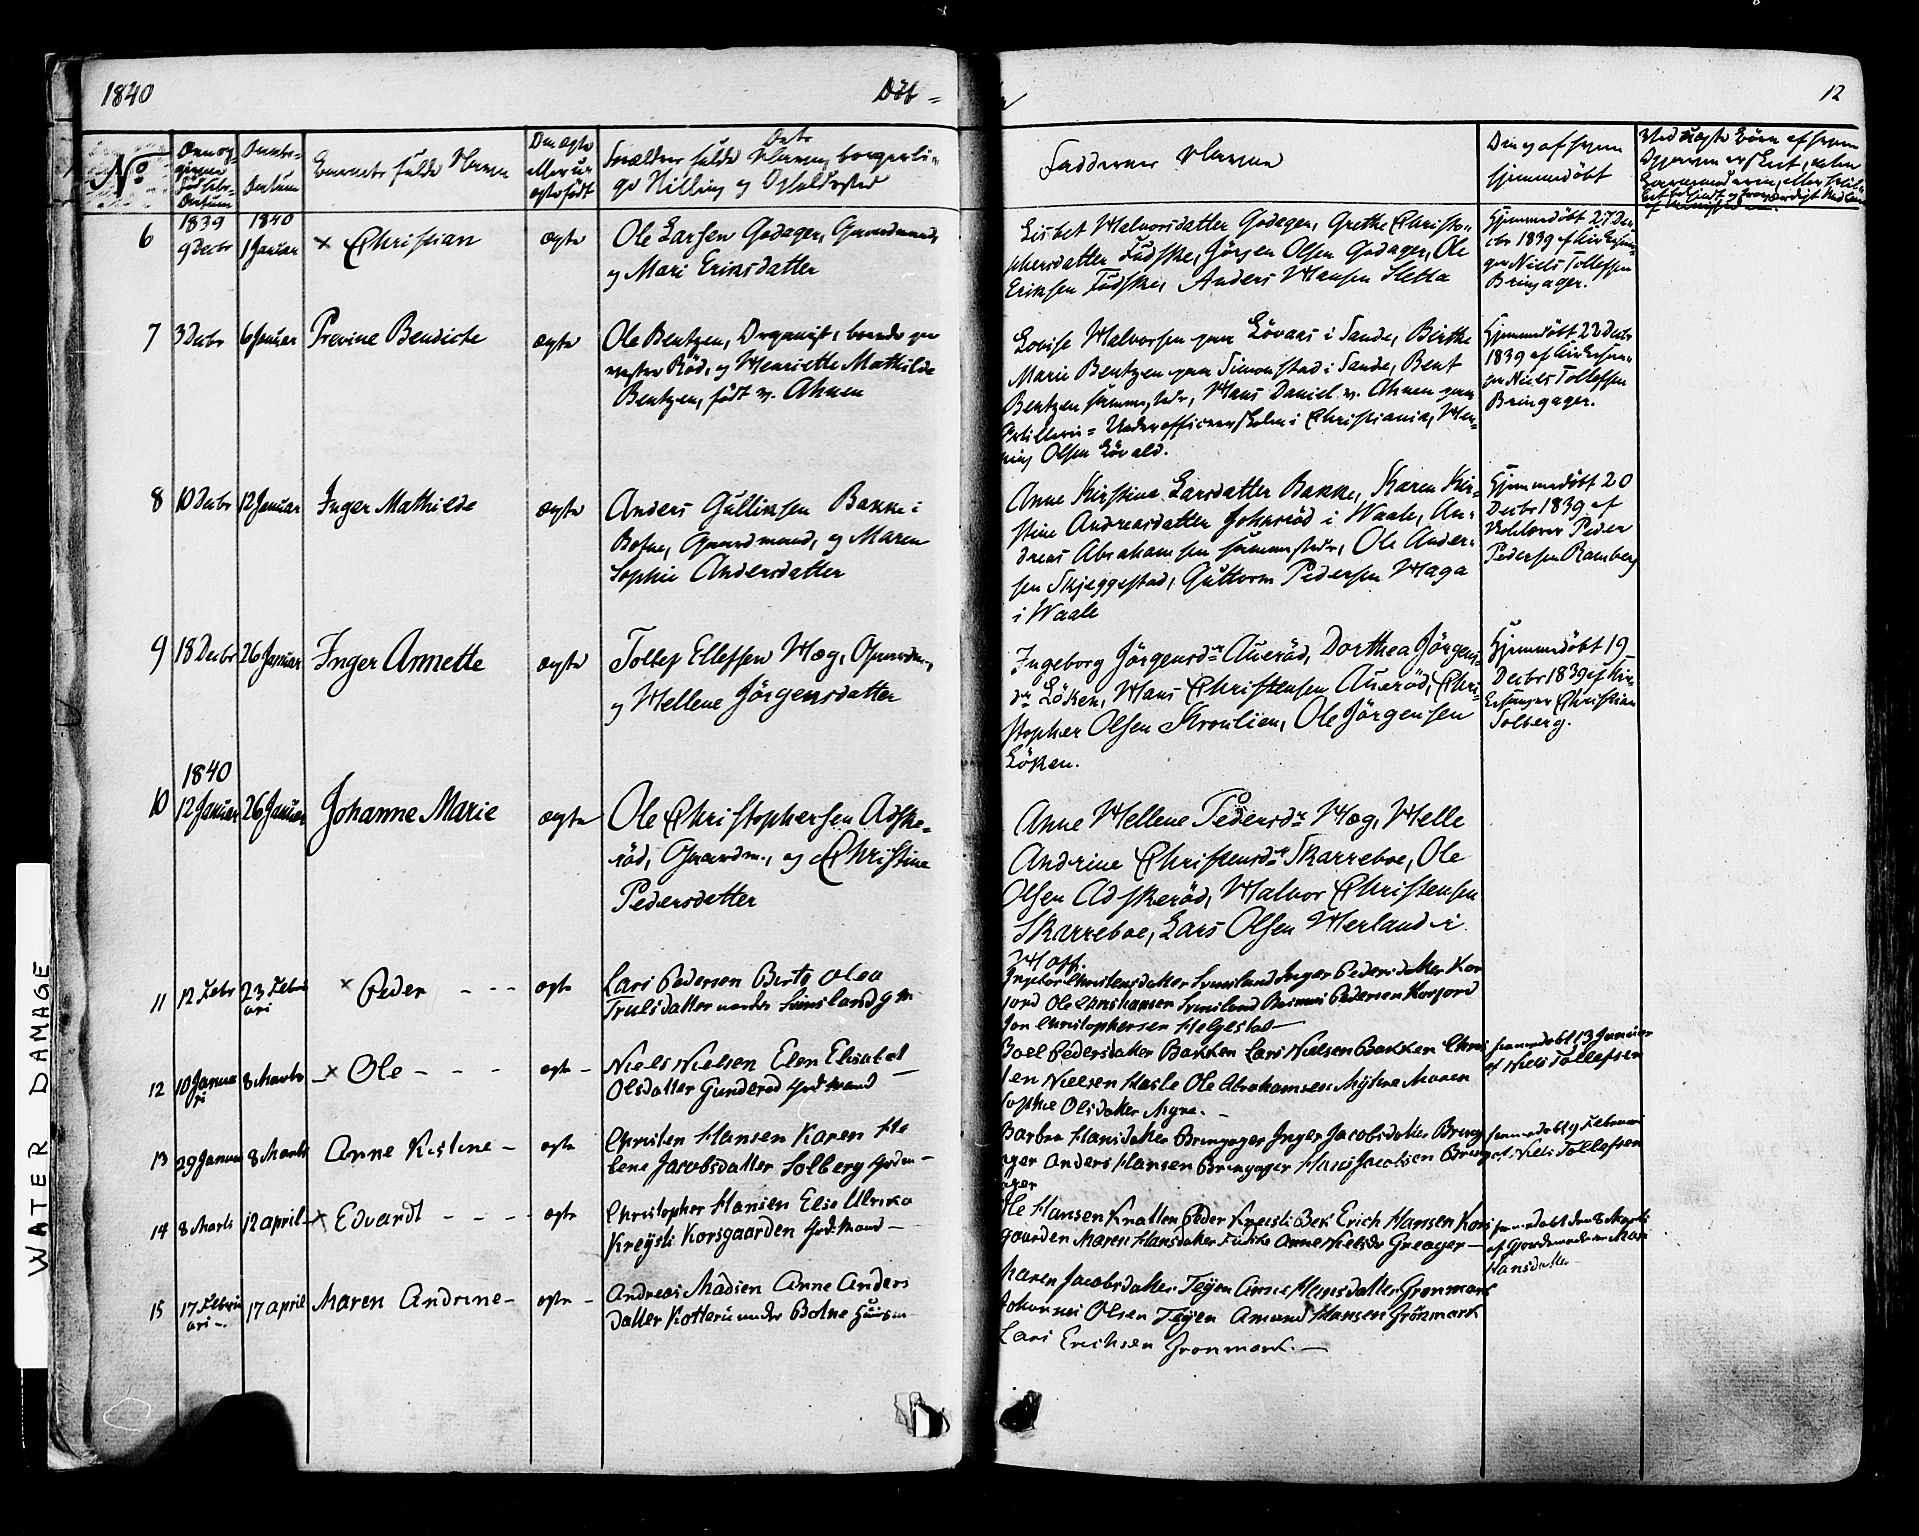 1840
Döb=
12
No
Barnets fulde Navn
Faddernes Navne
hjemmedöbt
6
1839
9 Decbr
1840
1 Januar
× Christian
ægte
Ole Larsen Godager, Gaardmand,
og Mari Eriksdatter
Lisbet Halvorsdatter Godager, Grethe Christo-
phersdatter Fudske, Jörgen Olsen Godager, Ole
Eriksen Fudske, Anders Hansen Sletta
Hjemmedöbt 27 De-
cbr 1839 af Kirkesan-
ger Niels Tollefsen
Bringager.
7
3 Decbr
6 Januar
Previne Bendicte
ægte
Ole Bentzen, Organist, boende paa
nestre Röd, og Henriette Mathilde
Bentzen, födt v. Ahnen
Lovise Halvorsen paa Lövaas i Sande, Birthe
Marie Bentzen paa Simonstad i Sande, Bent
Bentzen sammesteds, Hans Daniel v. Ahnen paa
Artilleri=Underofficeerskolen i Christiania, Hen-
ning Olsen Lövald.
Hjemmedöbt 22 Decbr
1839 af Kirkesan-
ger Niels Tollefsen
Bringager.
8
10 Decbr
12 Januar
Inger Mathilde
ægte
Anders Gulliksen Bakke i
Botne, Gaardmand, og Maren
Sophie Andersdatter
Anne Kirstine Larsdatter Bakke, Karen Kir-
stine Andreasdatter Johnsröd i Waale, An-
dreas Abrahamsen sammesteds, Ole Ander-
sen Skjeggestad, Guttorm Pedersen Haga
i Waale
Hjemmedöbt 20
Decbr 1839 af
Peder
Pedersen Ramberg
9
18 Decbr
26 Januar
Inger Annette
ægte
Tollef Ellefsen Hæg, Gaardm.,
og Hellene Jörgensdatter
Ingeborg Jörgensdr Aueröd, Dorthea Jörgens-
dr Löken, Hans Christensen Aueröd, Chri-
stopher Olsen Kronlien, Ole Jörgensen
Löken.
Hjemmedöbt 19
Decbr 1839 af Kir-
kesanger Christian
Solberg.
1840
10
12 Januar
26 Januar
Johanne Marie
ægte
Ole Christophersen Adske-
röd, Gaardm., og Christine
Pedersdatter
Anne Hellene Pedersdr Hæg, Helle
Andrine Christensdr Skarreboe, Ole
Olsen Adskeröd, Halvor Christensen
Skarreboe, Lars Olsen Herland i
Hoff.
11
12 Febr
23 Febru
ari
× Peder - - -
ægte
Lars Pedersen Berte Olea
Trulsdatter nordre Sunsland g m
Christensdatter Inger Pedersdatter Kor
sord Ole Christiansen Rasmus Pedersen Korsord
Jon Christophersen Helgestad —
12
10 Janua
ri
8 Marts
× Ole - - -
ægte -
Niels Nielsen Elen Elisabet
Olsdatter Gunderöd grdmand —
Boel Pedersdatter Bakken Lars Nielsen Bakken Chris
ten Nielsen Hasle Ole Abrahamsen Myhre Maren
Sophie Olsdatter Myre. -
hjemmedöbt 13 Januar
af Niels Tollefsen
13
29 Januar
8 Marts
Anne Kistine -
ægte
Christen Hansen Karen He
lene Jacobsdatter Solberg grdm -
Barbra Hansdatter Bringager Inger Jacobsdatter Bring
ager Anders Hansen Bringager Hans Jacobsen Bring
ager
hjemmedöbt 9 Februar
af Niels Tollefsen
14
8 Marts
12 april
× Edvardt - - -
ægte
Christopher Hansen Elise Ulrika
Kreysti Korsgaarden grdmand -
Ole Hansen Knatten Peder Kreisti Bek Erich Hansen Kors
gaarden Maren Hansdatter Fuske Anne Nielsdr Greager -
hjemmedöbt den 8 Marts
af Mari
Hansdatter
15
17 Febru
ari -
17 april
Maren Andrine -
ægte -
Andreas Madsen Anne Anders
datter Kotteri under Botne Huusm
Maren Jacobsdatter Teyen Anne Hansdatter Grönmark
Johannes Olsen Teyen Amund Hansen Grönmark
Lars Erichsen Gronmark. —
WATER DAMAGE